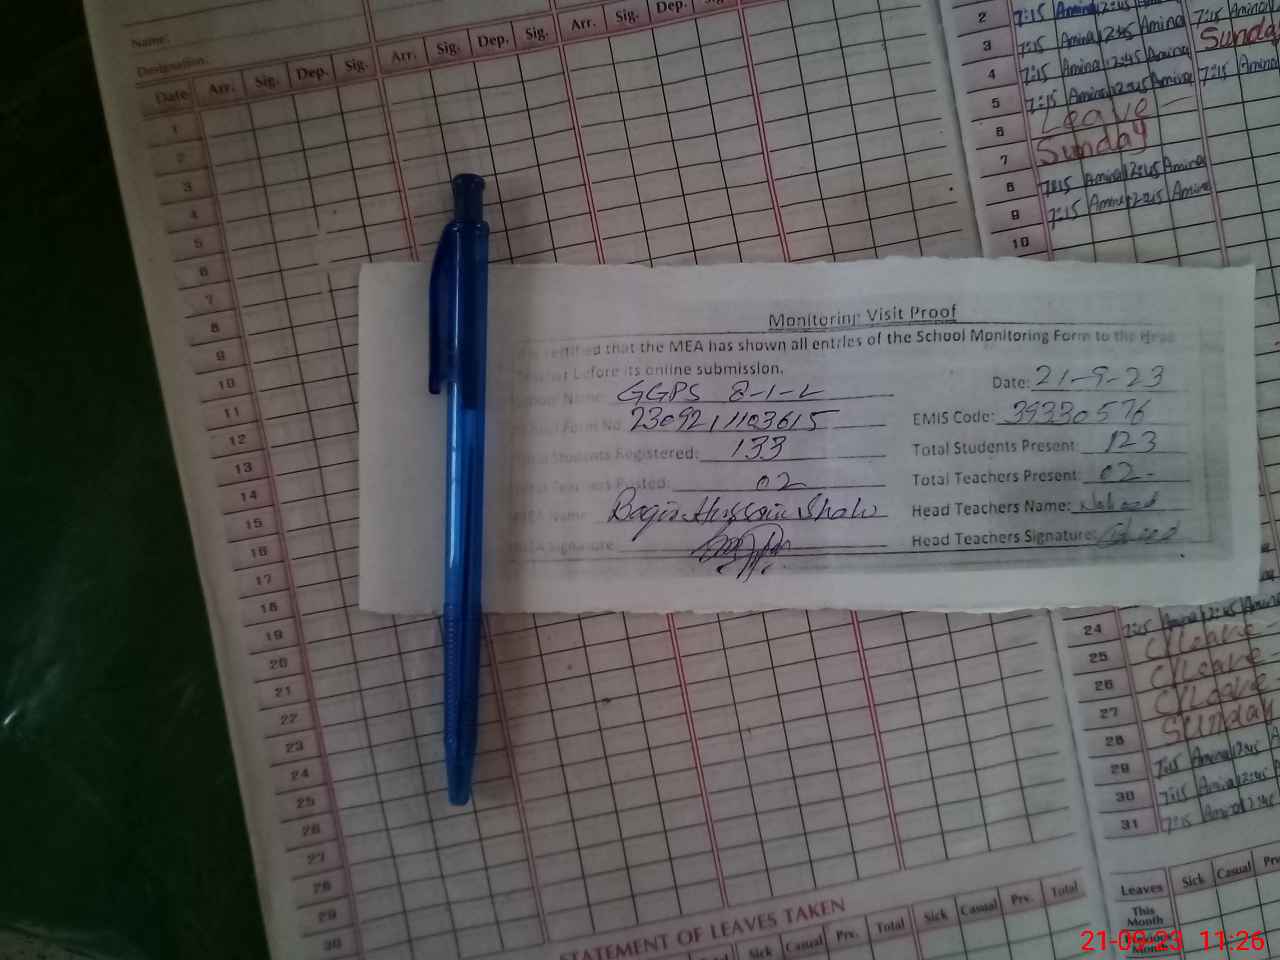 Name:
Designation:
Date Arr. Sig. Dep. Sig. Arr. Sig. Dep. Sig. Arr. Sig. Dep.
1
2
3
4
5
6
7
8
9
10
11
12
13
14
15
16
17
18
19
20
21
22
23
24
25
26
27
28
29
30
STATEMENT OF LEAVES TAKEN
Sick Casual Prv. Total Sick Casual Prv. Total
2 7:15 Amina 12:45 Amina 7:15 Amina
3 7:15 Amina 12:45 Amina Sunday
4 7:15 Amina 12:45 Amina 7:15 Amina
5 7:15 Amina 12:45 Amina
6 Leave
7 Sunday
8 7:15 Amina 12:45 Amina
9 7:15 Amina 12:45 Amina
10
Monitoring Visit Proof
certified that the MEA has shown all entries of the School Monitoring Form to the Head
before its online submission.
School Name: GGPS 8-1-L Date: 21-9-23
Form No. 2309211103615 EMIS Code: 39330576
Total Students Registered: 133 Total Students Present: 123
Total Teachers Posted: 02 Total Teachers Present: 02-
MEA Name: Baqir Hussain Shah Head Teachers Name: Naheed
MEA Signature Head Teachers Signature:
24 7:15 Amina 12:45 Amina
25 C/Leave
26 C/Leave
27 C/Leave
28 Sunday
29 7:15 Amina 12:45
30 7:15 Amina 12:45
31 7:15 Amina 12:45
Leaves Sick Casual Prv.
This
Month
21-09-23 11:26